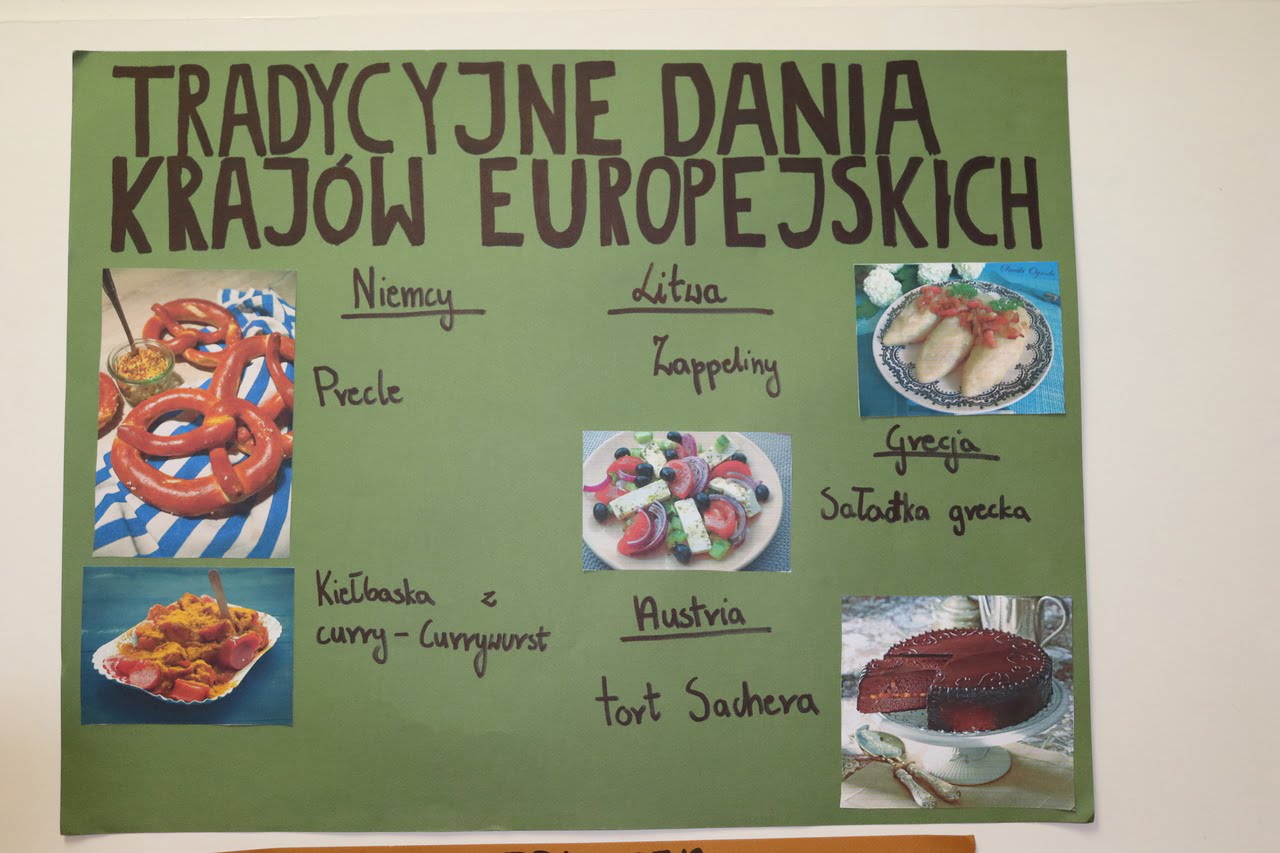 TRADYCYJNE DANIA
KRAJÓW EUROPEJSKICH
Niemcy
Precle
Kiełbaska z
curry - Currywurst
Litwa
Zappeliny
Grecja
Sałatka grecka
Austria
tort Sachera